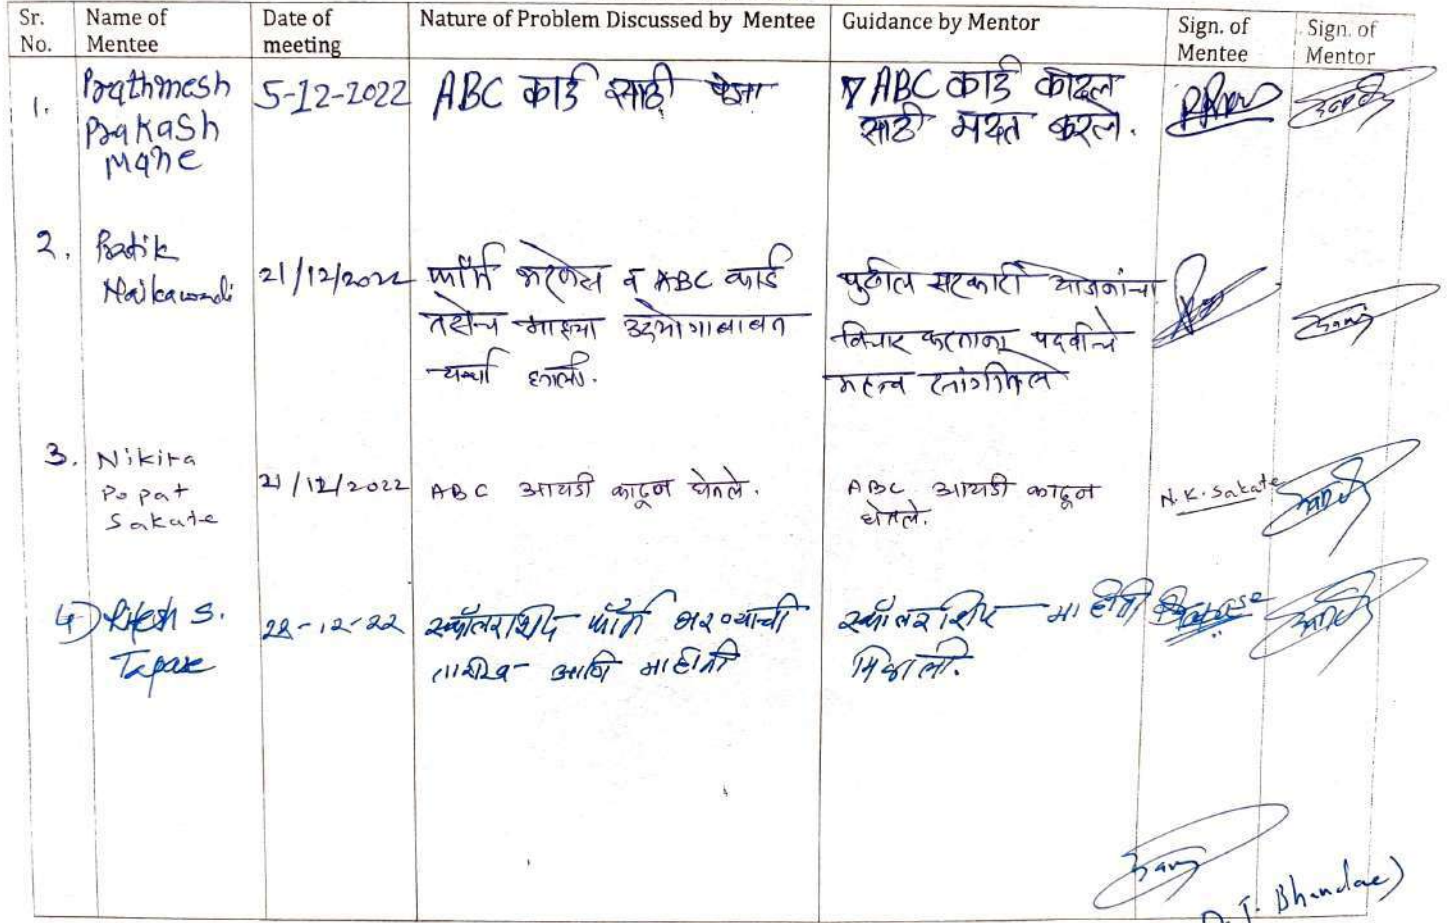 Sr. No.
Name of Mentee
Date of meeting
Nature of Problem Discussed by Mentee
Guidance by Mentor
Sign. of Mentee
Sign. of Mentor
1.
Prathmesh
Prakash
Mane
5-12-2022
ABC कार्ड साठी
ABC कार्ड काढल
साठी मदत करले.
2.
Pratik
Naikawadi
21/12/2022
फॉर्म भरणेस व ABC कार्ड
तसेच माझ्या उद्योगाबाबत
चर्चा झाली.
पुढील सरकारी योजनांचा
विचार करताना पदवीचे
महत्व सांगितले
3.
Nikita
Popat
Sakate
21/12/2022
ABC आयडी काढून घेतले.
ABC आयडी काढून
घेतले.
N.K. Sakate
4)
Ritesh S.
Tapase
28-12-22
स्कॉलरशिप फॉर्म भरण्याची
तारीख - आणि माहिती
स्कॉलरशिप माहिती
मिळाली.
Tapase
Bhandare)